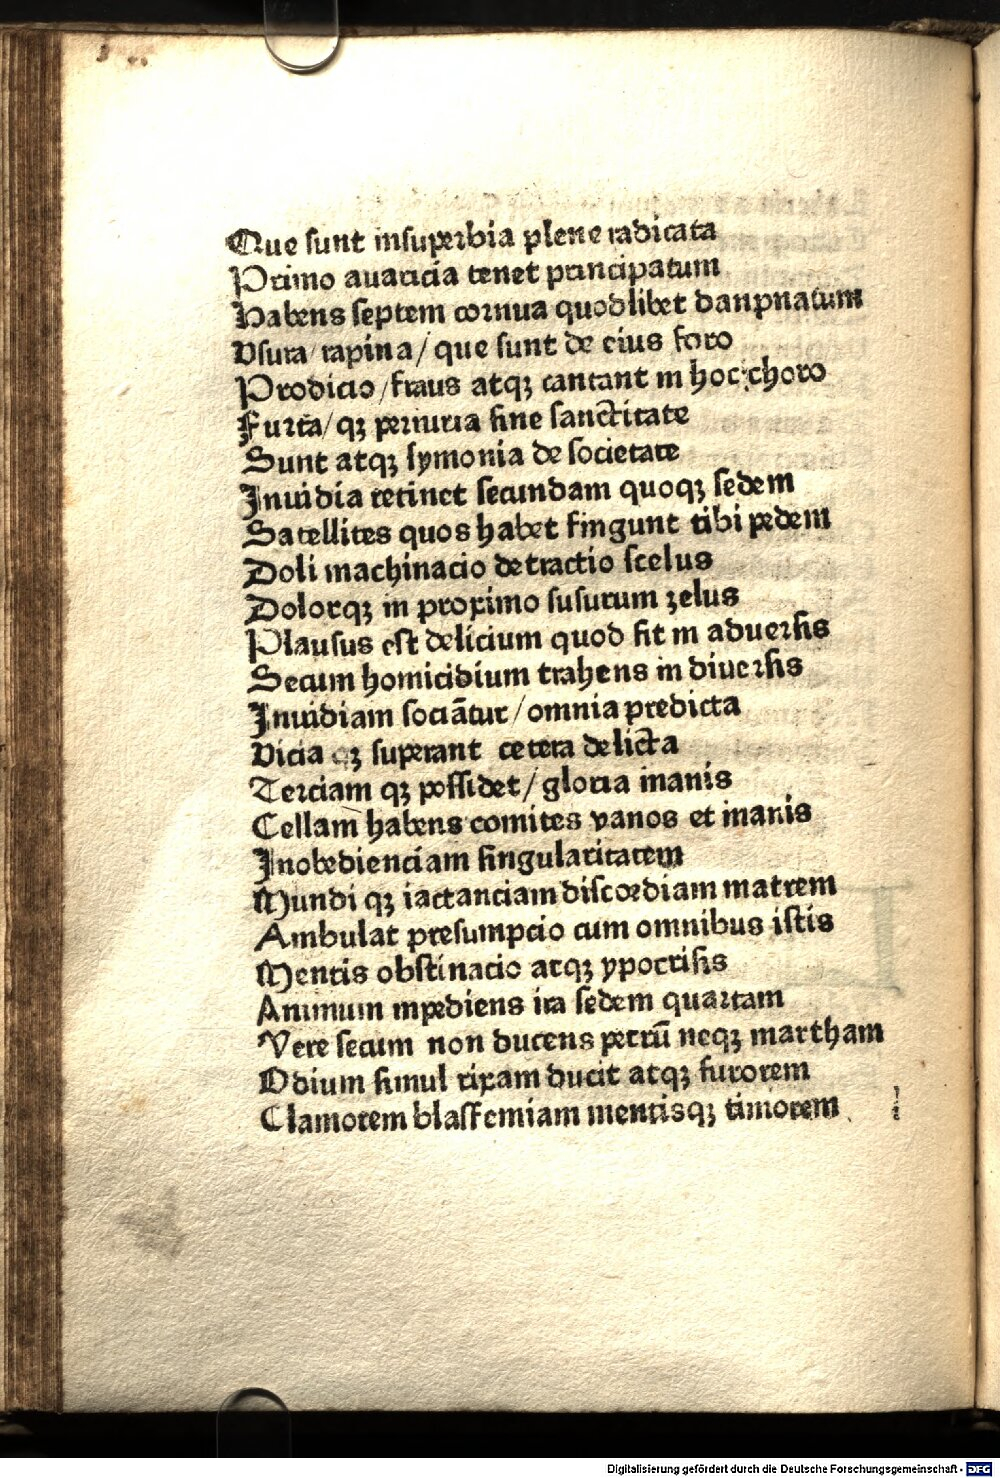 Que sunt insuperbia plene radicata
Primo auaricia tenet principatum
Habens septem cornua quodlibet danpnatum
Vsura/rapina/que sunt de eius foro
Prodicio/fraus atqꝫ cantant in hoc choro
Furta/qꝫ periuria sine sanctitate
Sunt atqꝫ symonia de societate
Inuidia retinet secundam quoqꝫ sedem
Satellites quos habet fingunt tibi pedem
Doli machinacio detractio scelus
Dolorqꝫ in proximo susurum zelus
Plausus est delicium quod fit in aduersis
Secum homicidium trahens in diuersis
Inuidiam sociãtur/omnia predicta
Vicia qꝫ superant cetera delicta
Terciam qꝫ possidet/gloria inanis
Cellam habens comites vanos et inanis
Inobedienciam singularitatem
Mundi qꝫ iactanciam discordiam matrem
Ambulat presumpcio cum omnibus istis
Mentis obstinacio atqꝫ ypocrisis
Animum inpediens ira sedem quartam
Vere secum non ducens petrū neqꝫ martham
Odium simul rixam ducit atqꝫ furorem
Clamorem blasfemiam mentisqꝫ timorem
Digitalisierung gefördert durch die Deutsche Forschungsgemeinschaft - DFG